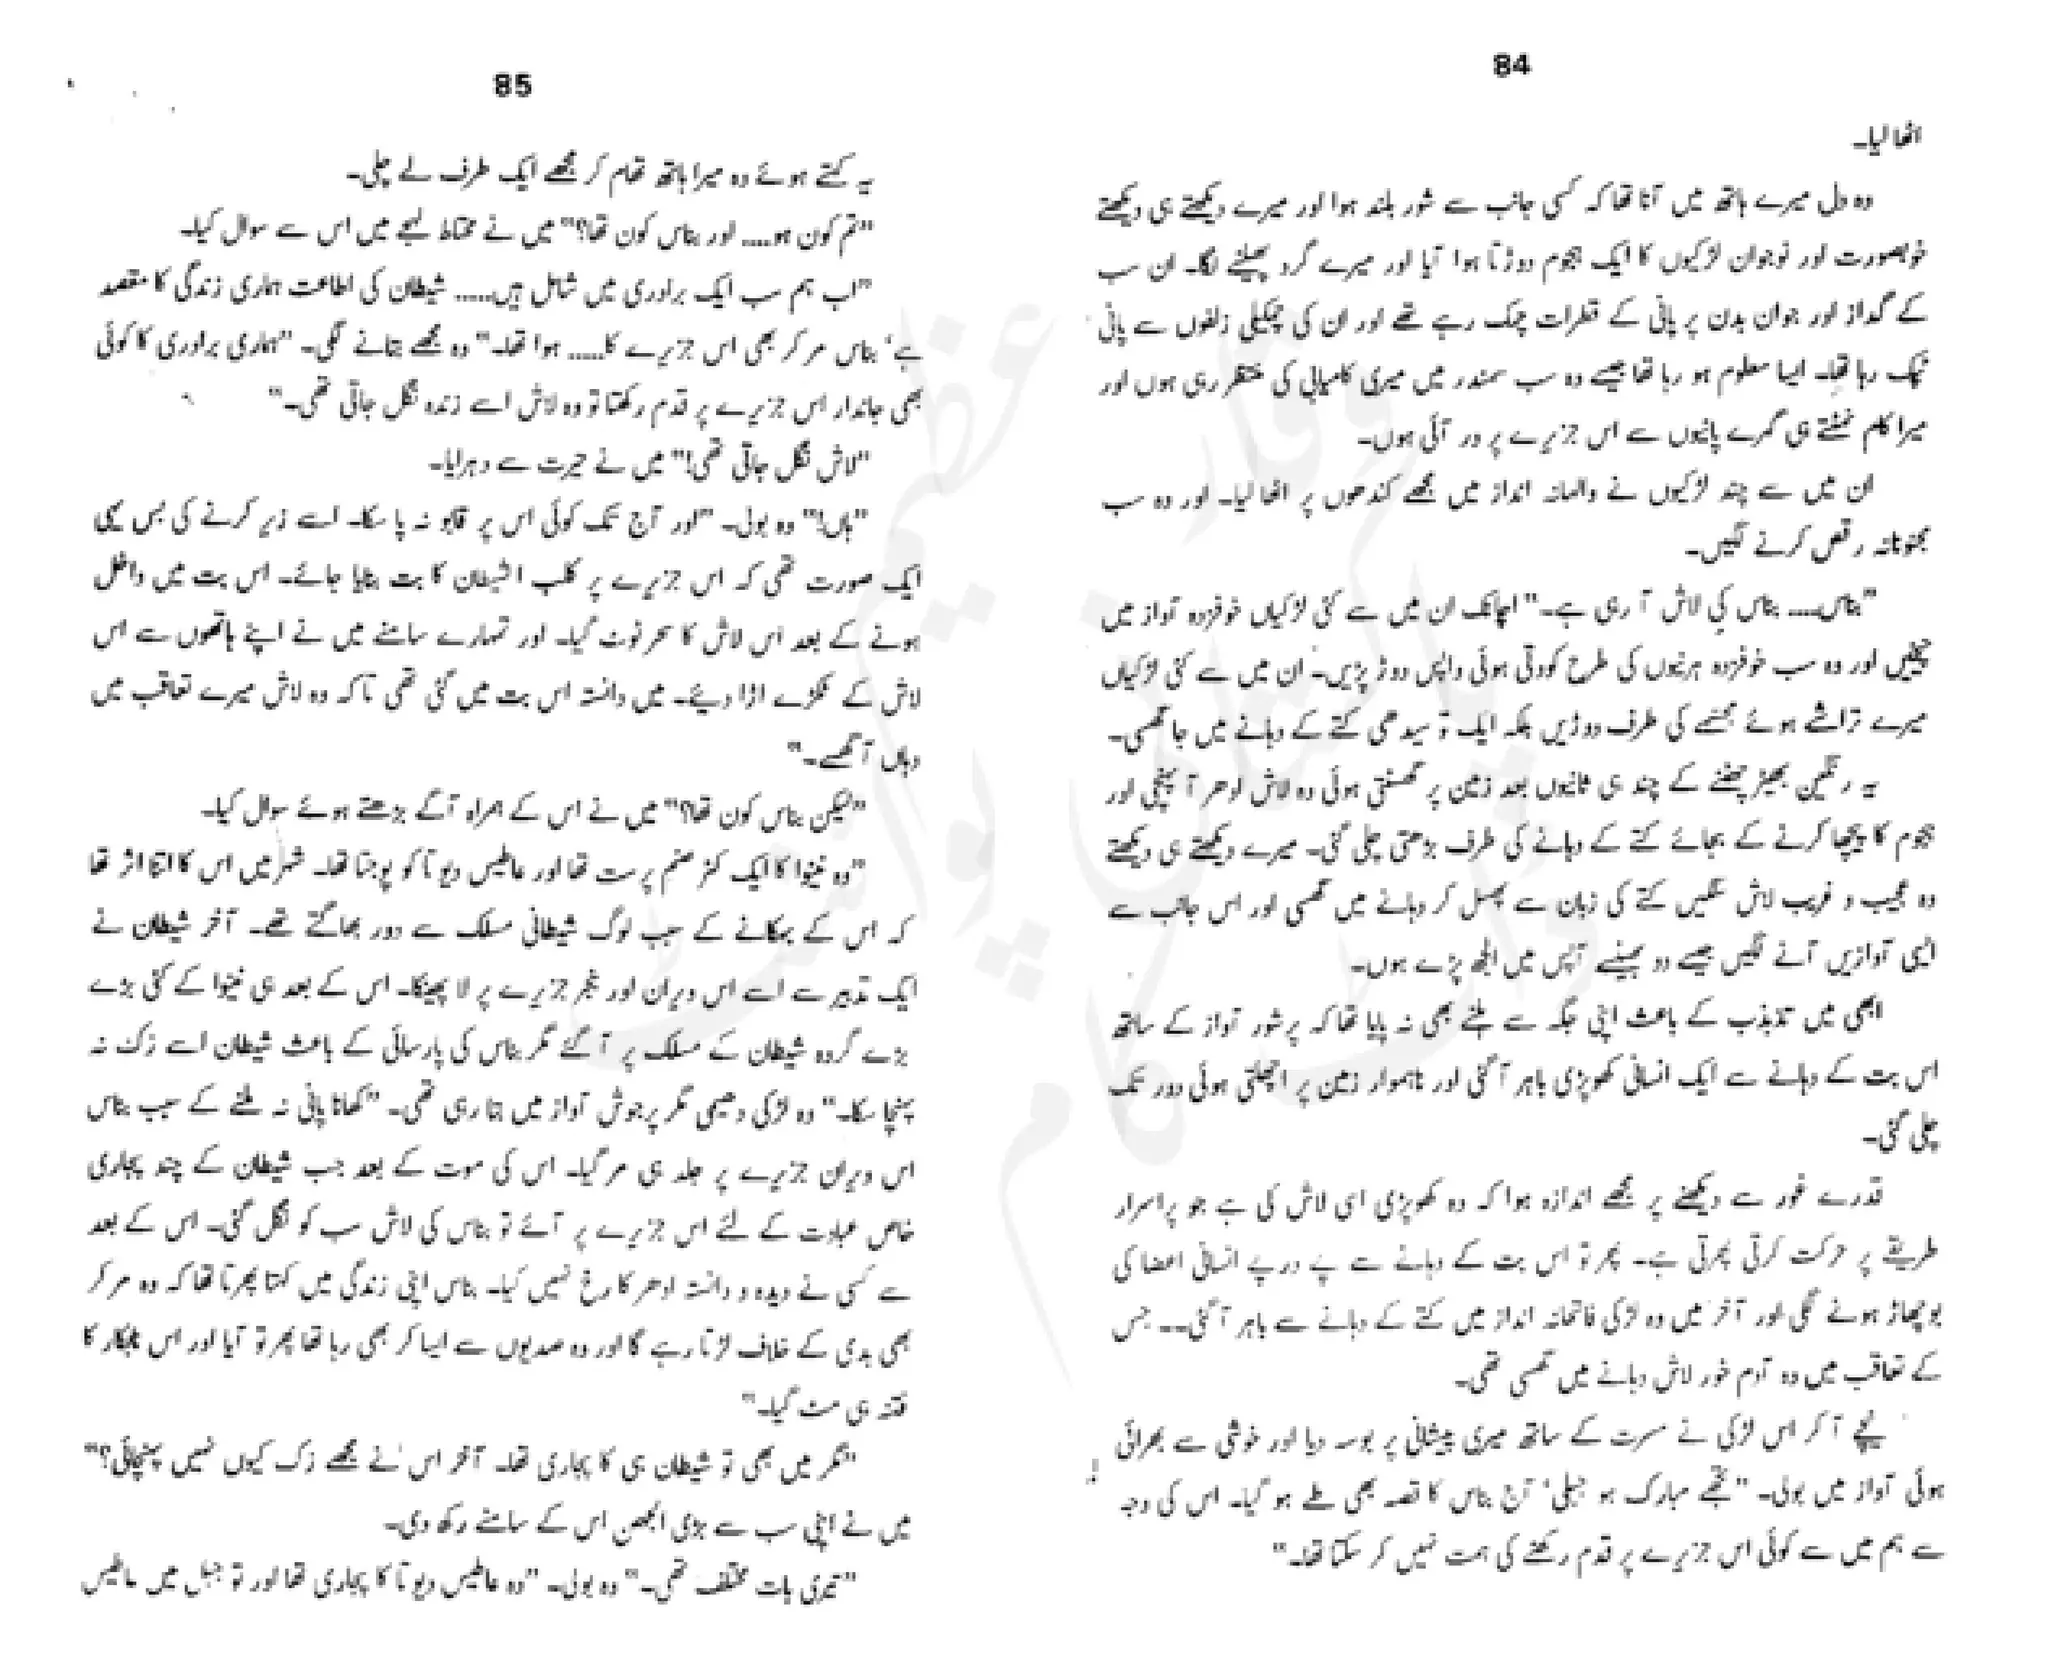 84
اٹھا لیا۔
وہ دل میرے ہاتھ میں آنا تھا کہ کسی جانب سے شور بلند ہوا اور میرے دیکھتے ہی دیکھتے
خوبصورت اور نوجوان لڑکیوں کا ایک ہجوم دوڑتا ہوا آیا اور میرے گرد پھیلنے لگا۔ ان سب
کے گداز اور جوان بدن پر پانی کے قطرات چمک رہے تھے اور ان کی چمکیلی زلفوں سے پانی
ٹپک رہا تھا۔ ایسا معلوم ہو رہا تھا جیسے وہ سب سمندر میں میری کامیابی کی منتظر رہی ہوں اور
میرا کام نمٹتے ہی گہرے پانیوں سے اس جزیرے پر در آئی ہوں۔
ان میں سے چند لڑکیوں نے والہانہ انداز میں مجھے کندھوں پر اٹھا لیا۔ اور وہ سب
مجنونانہ رقص کرنے لگیں۔
"بناس.... بناس کی لاش آ رہی ہے۔" اچانک ان میں سے کئی لڑکیاں خوفزدہ آواز میں
چیخیں اور وہ سب خوفزدہ ہرنیوں کی طرح کودتی ہوئی واپس دوڑ پڑیں۔ ان میں سے کئی لڑکیاں
میرے تراشے ہوئے مجسمے کی طرف دوڑیں بلکہ ایک تو سیدھی کتے کے دہانے میں جا گھسی۔
یہ رنگین بھیڑ چھٹنے کے چند ہی ثانیوں بعد زمین پر گھسٹتی ہوئی وہ لاش ادھر آ پہنچی اور
ہجوم کا پیچھا کرنے کے بجائے کتے کے دہانے کی طرف بڑھتی چلی گئی۔ میرے دیکھتے ہی دیکھتے
وہ عجیب و غریب لاش سنگیں کتے کی زبان سے پھسل کر دہانے میں گھسی اور اس جانب سے
ایسی آوازیں آنے لگیں جیسے دو بھینسے آپس میں الجھ پڑے ہوں۔
ابھی میں تذبذب کے باعث اپنی جگہ سے ہلنے بھی نہ پایا تھا کہ پرشور آواز کے ساتھ
اس بت کے دہانے سے ایک انسانی کھوپڑی باہر آ گئی اور ناہموار زمین پر اچھلتی ہوئی دور تک
چلی گئی۔
قدرے غور سے دیکھنے پر مجھے اندازہ ہوا کہ وہ کھوپڑی اسی لاش کی ہے جو پراسرار
طریقے پر حرکت کرتی پھرتی ہے۔ پھر تو اس بت کے دہانے سے پے درپے انسانی اعضا کی
بوچھاڑ ہونے لگی اور آخر میں وہ لڑکی فاتحانہ انداز میں کتے کے دہانے سے باہر آ گئی۔۔ جس
کے تعاقب میں وہ آدم خور لاش دہانے میں گھسی تھی۔
نیچے آ کر اس لڑکی نے مسرت کے ساتھ میری پیشانی پر بوسہ دیا اور خوشی سے بھرائی
ہوئی آواز میں بولی۔ "تجھے مبارک ہو جبلی' آج بناس کا قصہ بھی طے ہو گیا۔ اس کی وجہ
سے ہم میں سے کوئی اس جزیرے پر قدم رکھنے کی ہمت نہیں کر سکتا تھا۔"
85
یہ کہتے ہوئے وہ میرا ہاتھ تھام کر مجھے ایک طرف لے چلی۔
"تم کون ہو.... اور بناس کون تھا؟" میں نے محتاط لہجے میں اس سے سوال کیا۔
"اب ہم سب ایک برادری میں شامل ہیں..... شیطان کی اطاعت ہماری زندگی کا مقصد
ہے' بناس مر کر بھی اس جزیرے کا..... ہوا تھا۔" وہ مجھے بتانے لگی۔ "ہماری برادری کا کوئی
بھی جاندار اس جزیرے پر قدم رکھتا تو وہ لاش اسے زندہ نگل جاتی تھی۔"
"لاش نگل جاتی تھی!" میں نے حیرت سے دہرایا۔
"ہاں!" وہ بولی۔ "اور آج تک کوئی اس پر قابو نہ پا سکا۔ اسے زیر کرنے کی بس یہی
ایک صورت تھی کہ اس جزیرے پر کلب الشیطان کا بت بنایا جائے۔ اس بت میں داخل
ہونے کے بعد اس لاش کا سحر ٹوٹ گیا۔ اور تمہارے سامنے میں نے اپنے ہاتھوں سے اس
لاش کے ٹکڑے اڑا دیئے۔ میں دانستہ اس بت میں گئی تھی تاکہ وہ لاش میرے تعاقب میں
وہاں آ گھسے۔"
"لیکن بناس کون تھا؟" میں نے اس کے ہمراہ آگے بڑھتے ہوئے سوال کیا۔
"وہ نینوا کا ایک کٹر صنم پرست تھا اور عاطیس دیوتا کو پوجتا تھا۔ شہر میں اس کا اتنا اثر تھا
کہ اس کے بہکانے کے سبب لوگ شیطانی مسلک سے دور بھاگتے تھے۔ آخر شیطان نے
ایک تدبیر سے اسے اس ویران اور بنجر جزیرے پر لا پھینکا۔ اس کے بعد ہی نینوا کے کئی بڑے
بڑے گروہ شیطان کے مسلک پر آ گئے مگر بناس کی پارسائی کے باعث شیطان اسے زک نہ
پہنچا سکا۔" وہ لڑکی دھیمی مگر پرجوش آواز میں بتا رہی تھی۔ "کھانا پانی نہ ملنے کے سبب بناس
اس ویران جزیرے پر جلد ہی مر گیا۔ اس کی موت کے بعد جب شیطان کے چند پجاری
خاص عبادت کے لئے اس جزیرے پر آئے تو بناس کی لاش سب کو نگل گئی۔ اس کے بعد
سے کسی نے دیدہ و دانستہ ادھر کا رخ نہیں کیا۔ بناس اپنی زندگی میں کہتا پھرتا تھا کہ وہ مر کر
بھی بدی کے خلاف لڑتا رہے گا اور وہ صدیوں سے ایسا کر بھی رہا تھا پھر تو آیا اور اس نابکار کا
فتنہ ہی مٹ گیا۔"
"مگر میں بھی تو شیطان ہی کا پجاری تھا۔ آخر اس نے مجھے زک کیوں نہیں پہنچائی؟"
میں نے اپنی سب سے بڑی الجھن اس کے سامنے رکھ دی۔
"تیری بات مختلف تھی۔" وہ بولی۔ "وہ عاطیس دیوتا کا پجاری تھا اور تو جبل میں عاطیس